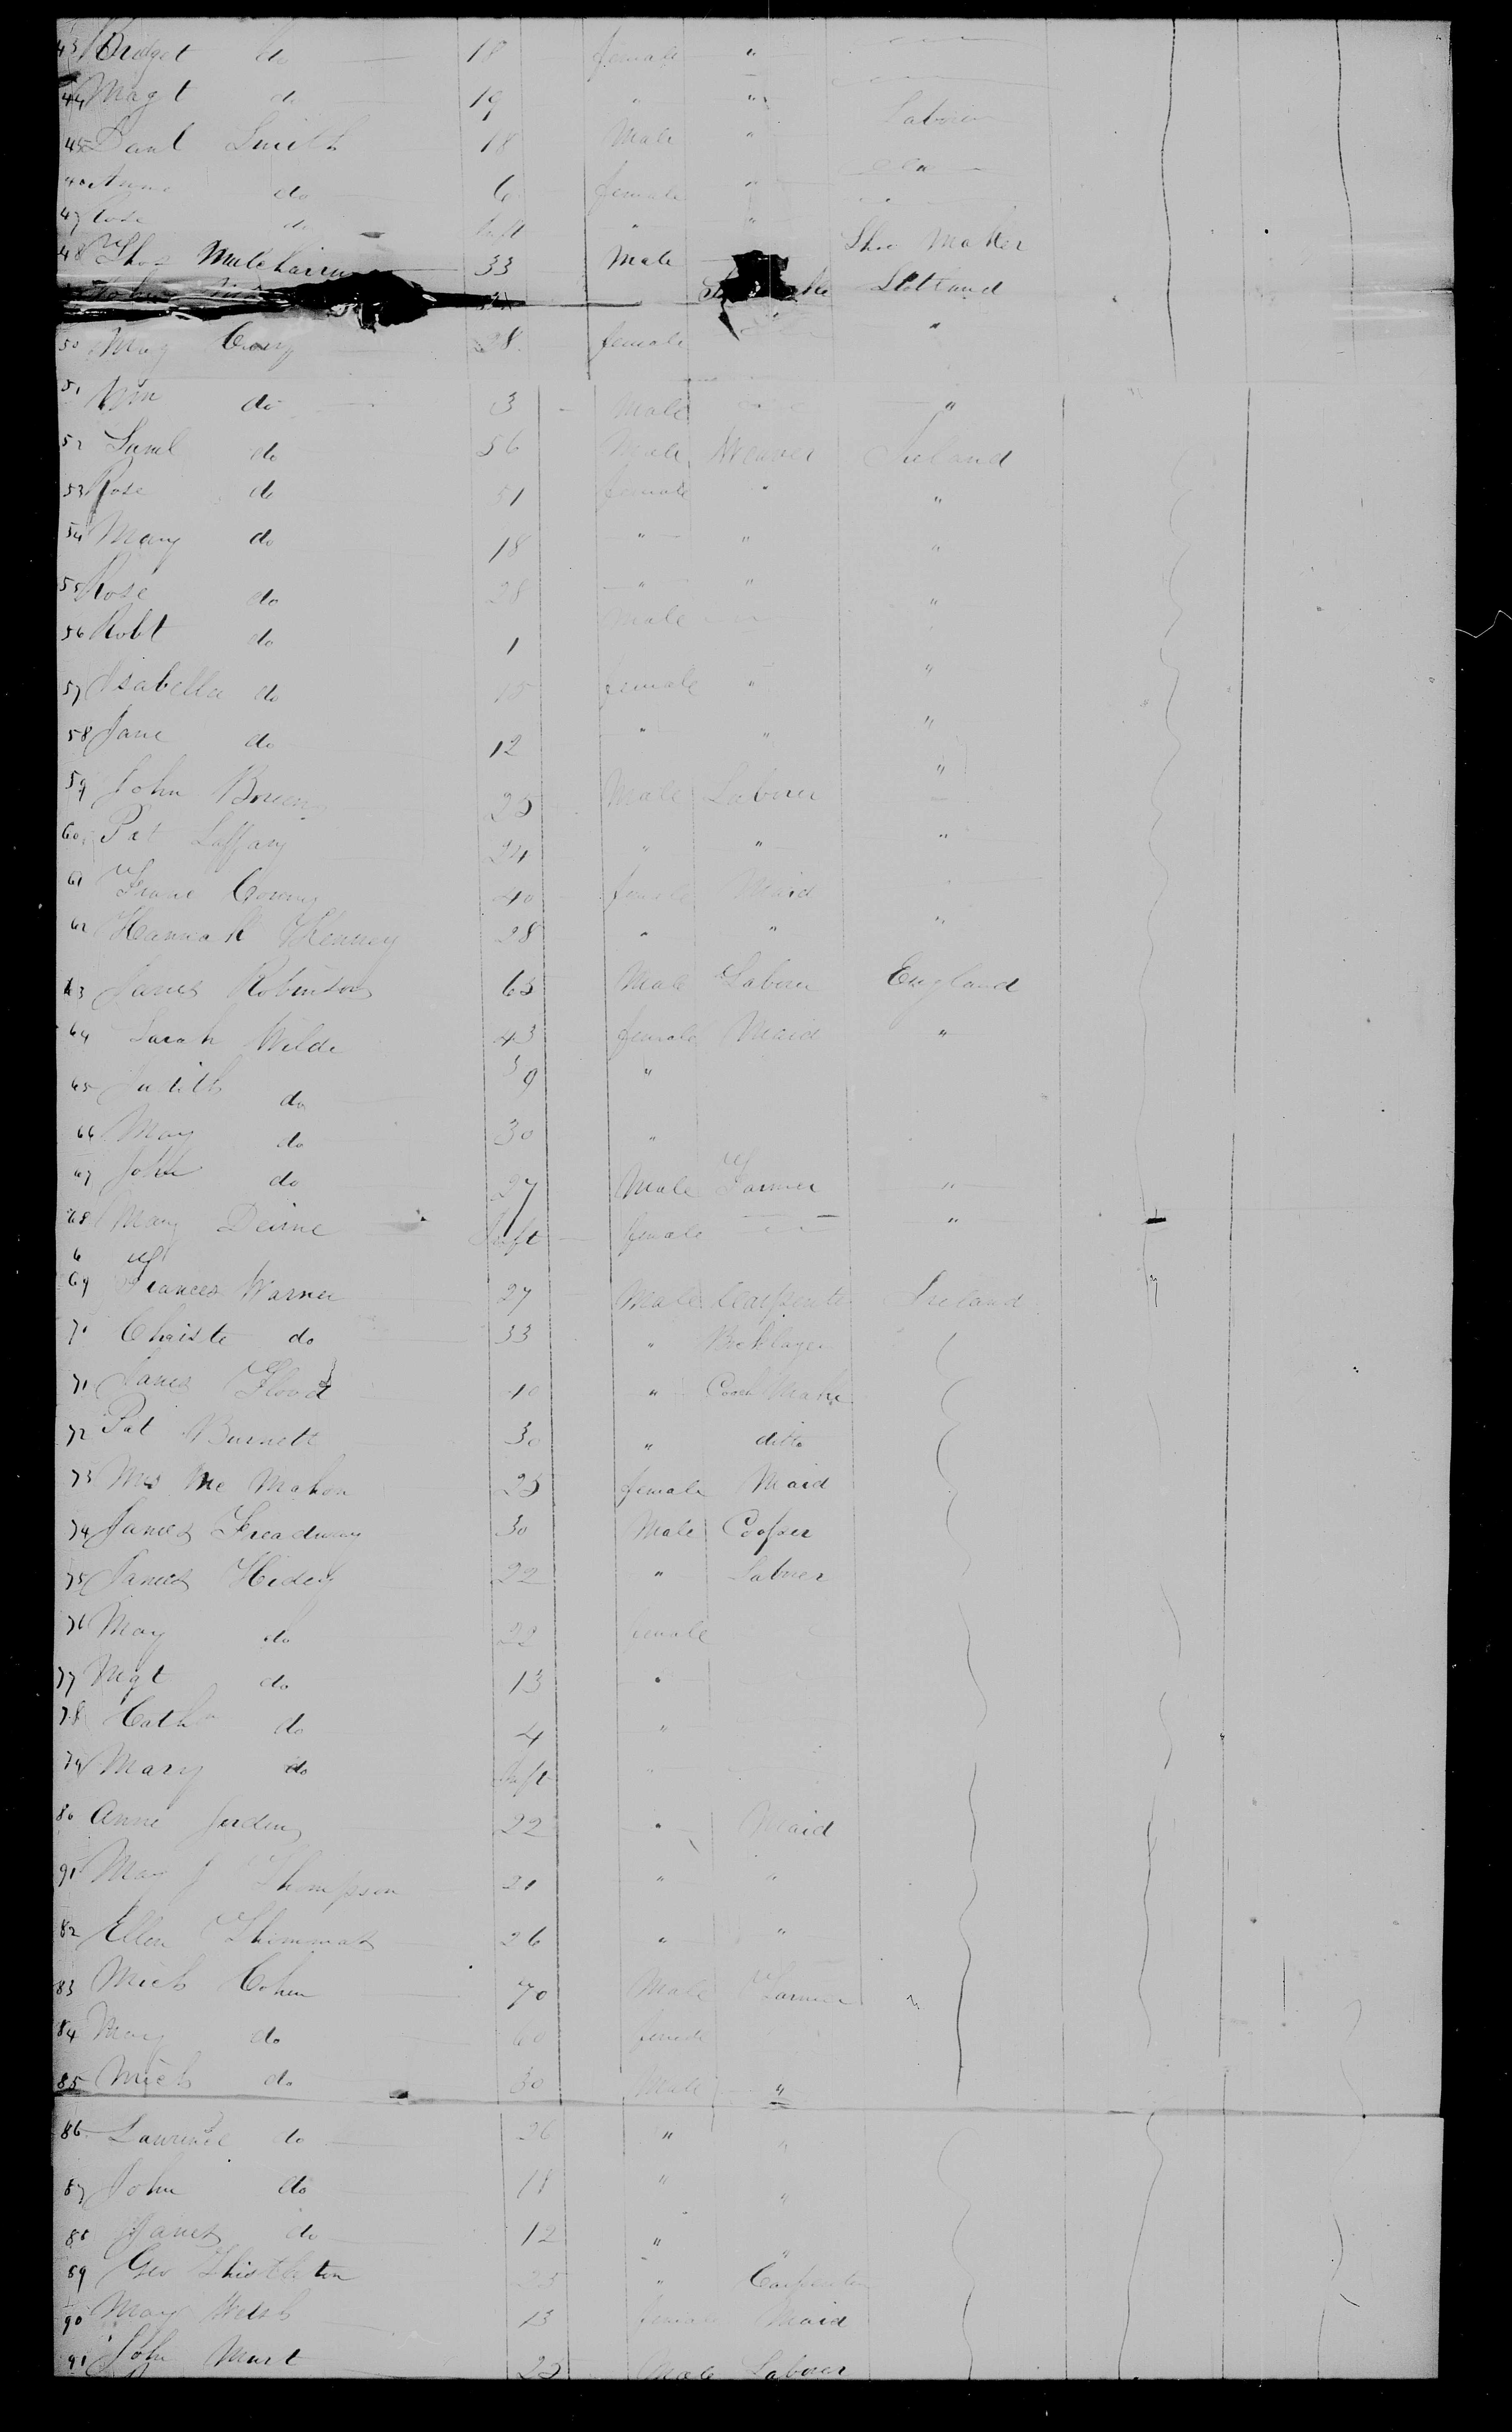 43 Bridget do 18 female "
44 Magt do 19 " "
45 Danl Smith 18 Male " Laborer
46 Anne do 6 female "
47 Rose do Inft " "
48 Thos 33 Male Shoe Maker
Scotland
50 Mary 28 female "
51 Wm do 3 Male "
52 Saml do 56 Male Weaver Ireland
53 Rose do 51 female " "
54 Mary do 18 " " "
55 Rose do 28 " "
56 Robt do 1 Male "
57 Isabella do 15 female " "
58 Jane do 12 " " "
59 John 25 Male Laborer "
60 Pat Laffary 24 " " "
61 40 female Maid
62 Hannah Kenney 28 " " "
63 James Robinson 65 Male Laborer England
64 Sarah Wilde 43 female Maid "
65 Judith do 39 "
66 May do 30 "
67 John do 27 Male Farmer "
68 Mary Deirne Inft female "
6
69 Frances Warner 27 Male Carpenter Ireland
70 Christe do 33 " Bricklayer
71 James Flood 40 " Coach Make
72 Pat Burnett 30 " ditto
73 Mrs Mc Mahon 25 female Maid
74 James Treadway 30 Male Cooper
75 James 22 " Laborer
76 May do 22 female
77 Mgt do 13 "
78 Cath do 4 "
79 Mary do Inft "
80 Anne 22 " Maid
91 May J Thompson 21 " "
82 Ellen 26 " "
83 Mich 70 Male Farmer
84 May do 60 female
85 Mich do 30 Male "
86 Lawrence do 26 " "
87 John do 18 " "
88 James do 12 " "
89 Geo Thistleton 25 " Carpenter
90 May Welsh 13 female Maid
91 John Murt 22 Male Laborer